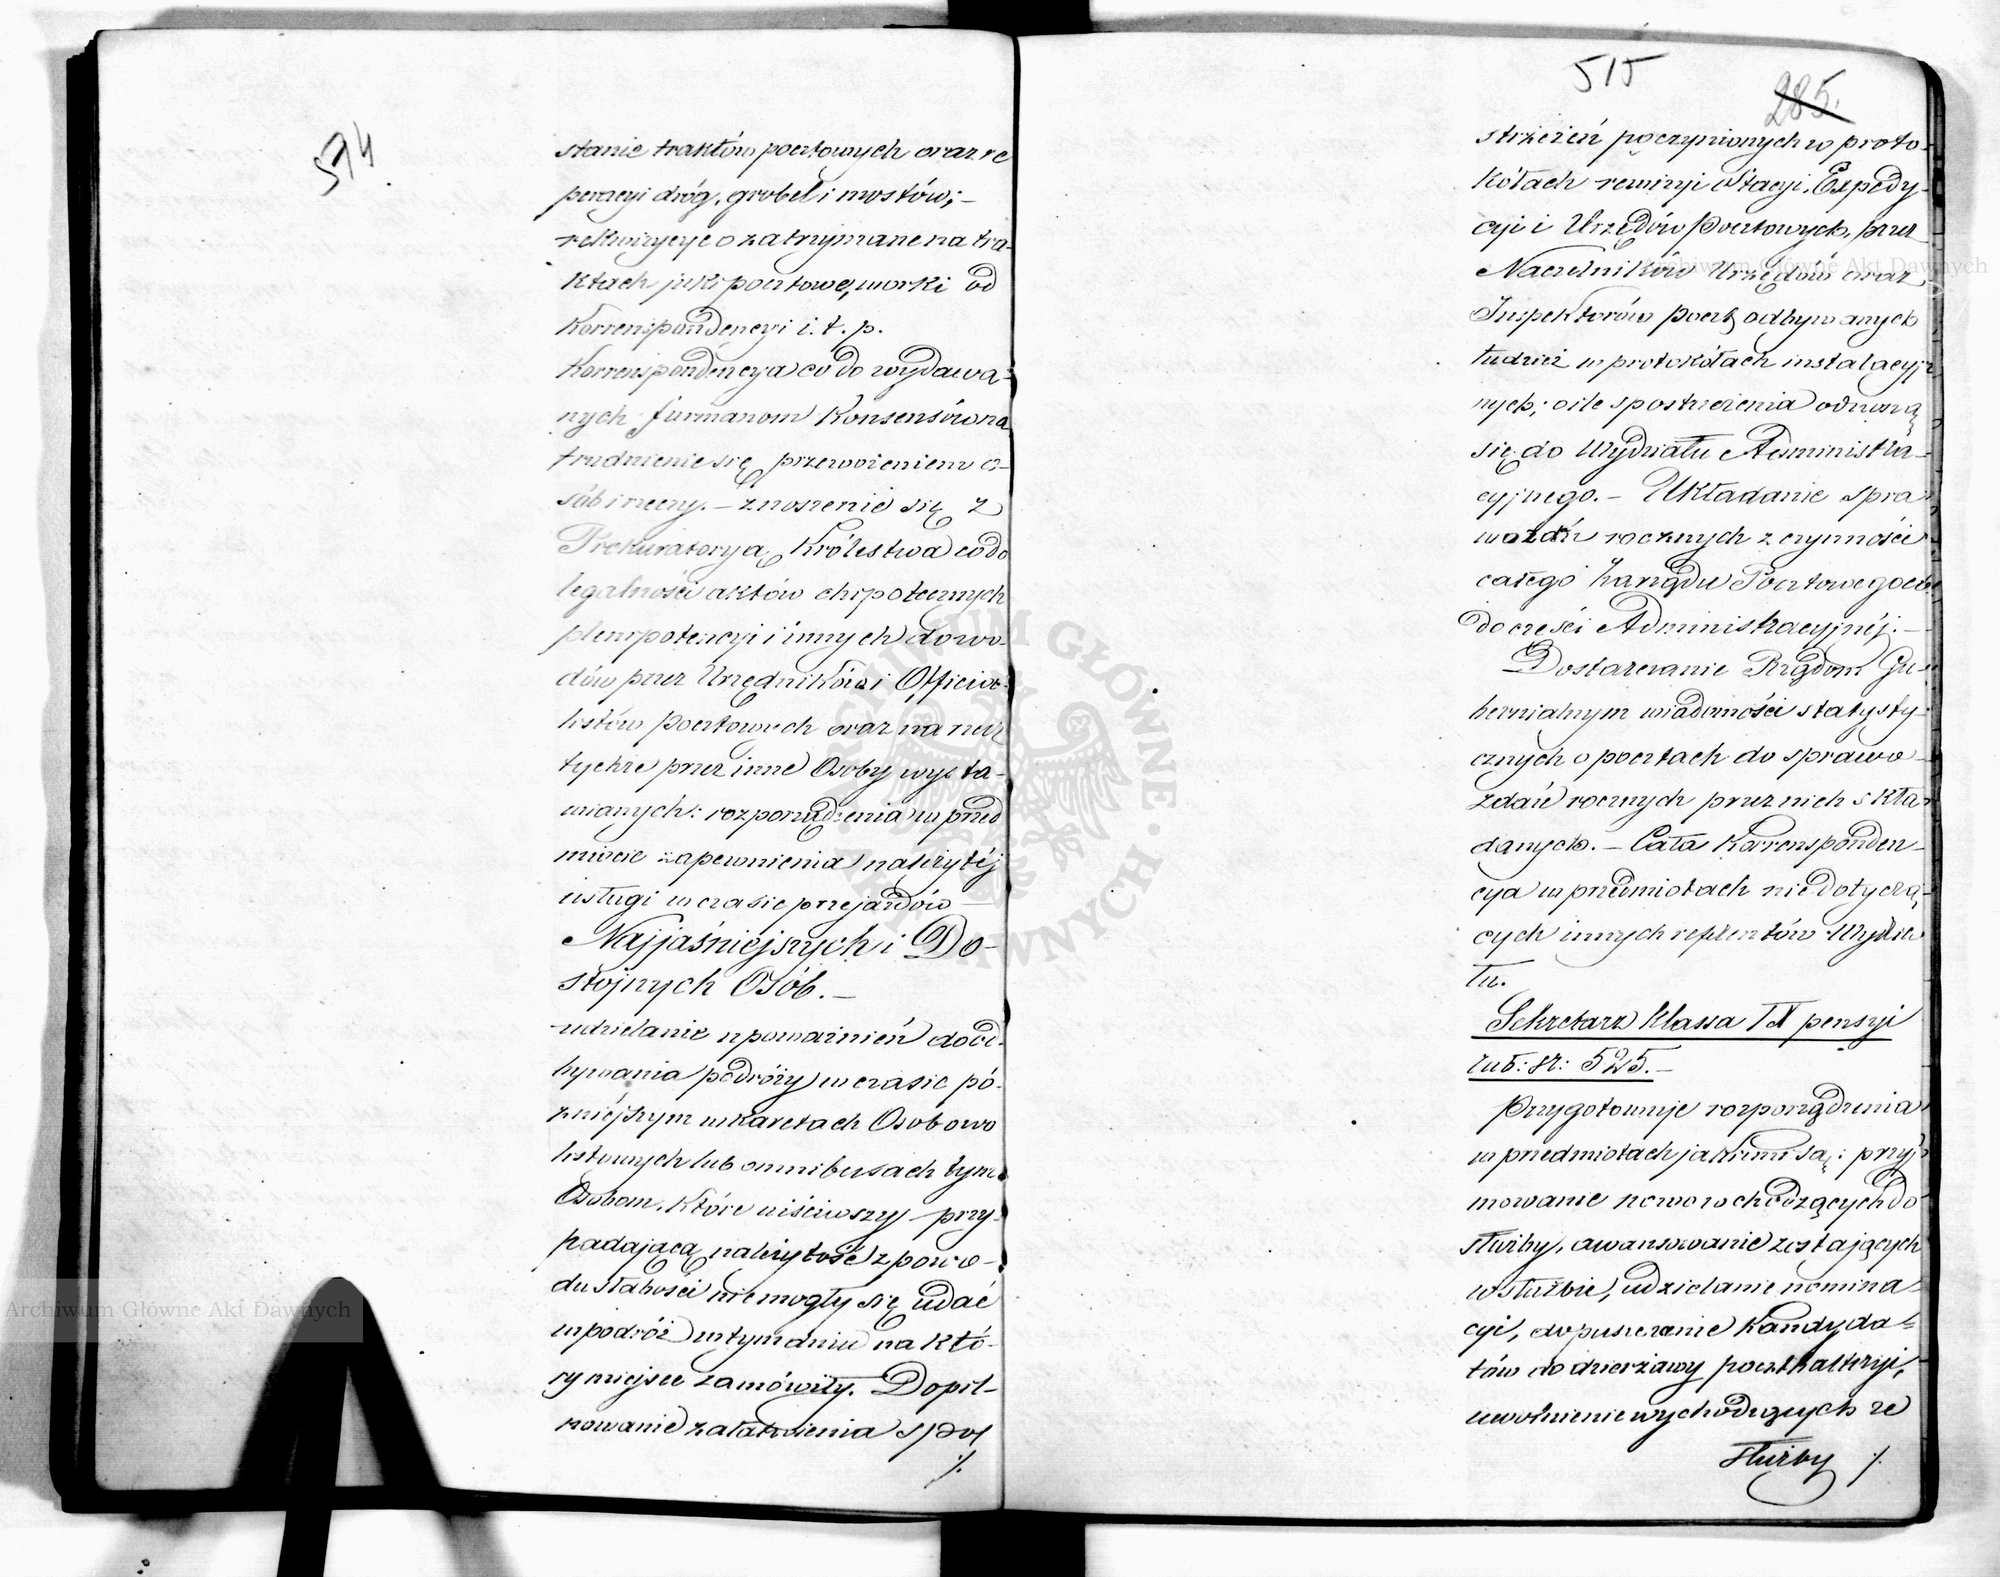 574
stanie traktów pocztowych oraz re
peracyi dróg, grobel i mostów; –
rekwizycye o zatrzymane na tra-
ktach juki pocztowe, worki od
Korrespondencyi i. t. p.
Korrespondencya co do wydawa-
nych furmanom Konsensów na
trudnienie się przewożeniem o-
sób i rzeczy. – znoszenie się z
Prokuratoryą Królestwa co do
legalności aktów chipotecznych
plenipotencyi i innych dowo-
dów przez Urzędników i Officia-
listów pocztowych oraz na rzecz
tychże przez inne Osoby wysta-
wianych: rozporządzenia w przed
miocie zapewnienia należytéj
usługi w czasie przejazdów
Najjaśniejszych i Do-
stojnych Osób. –
udzielanie upoważnień do od-
bywania podróży w czasie pó-
źniejszym w karetach Osobowo
listowych lub omnibusach tym
Osobom, które uiściwszy przy-
padającą należytość z powo-
du słabości nie mogły się udać
w podróż w tym dniu na któ-
ry miejsce zamówiły. Dopil-
nowanie załatwienia spos
./.
515
285.
strzeżeń poczynionych w proto-
kółach rewizyi Stacyi, Expedy-
cyi i Urzędów Pocztowych, przez
Naczelników Urzędów oraz
Inspektorów poczt odbywanych
tudzież w protokółach instalacyj-
nych; o ile spostrzeżenia odnoszą
się do Wydziału Administra-
cyjnego. – Układanie spra
wozdń rocznych z czynności
całego Zarządu Pocztowego co
do części Administracyjnéj. –
Dostarczanie Rządom Gu-
bernialnym wiadomości statysty-
cznych o pocztach do sprawo-
zdań rocznych przez nich skła-
danych. – Cała Korresponden-
cya w przedmiotach nie dotyczą-
cych innych referentów Wydzia
łu.
Sekretarz Klassa IX pensyi
rub: sr: 525. –
Przygotowuje rozporządzenia
w przedmiotach jakiemi są: przyj-
mowanie nowo wchodzących do
służby, awansowanie zostających
w służbie, udzielanie nomina-
cyi, dopuszczanie Kandyda-
tów do dzierżawy poczthalteryi,
uwolnienie wychodzących ze
służby ./.
Archiwum Główne Akt Dawnych
Archiwum Główne Akt Dawnych
ARCHIWUM GŁÓWNE · AKT DAWNYCH ·